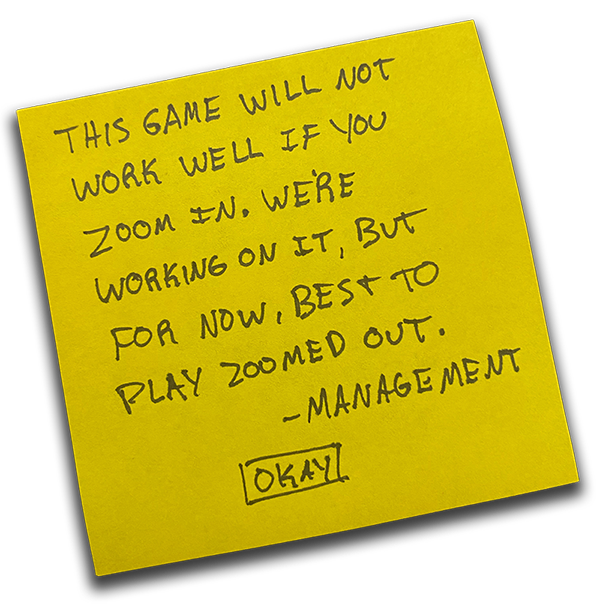 THIS GAME WILL NOT
WORK WELL IF YOU
ZOOM IN. WE'RE
WORKING ON IT, BUT
FOR NOW, BEST TO
PLAY ZOOMED OUT.
-MANAGEMENT
OKAY